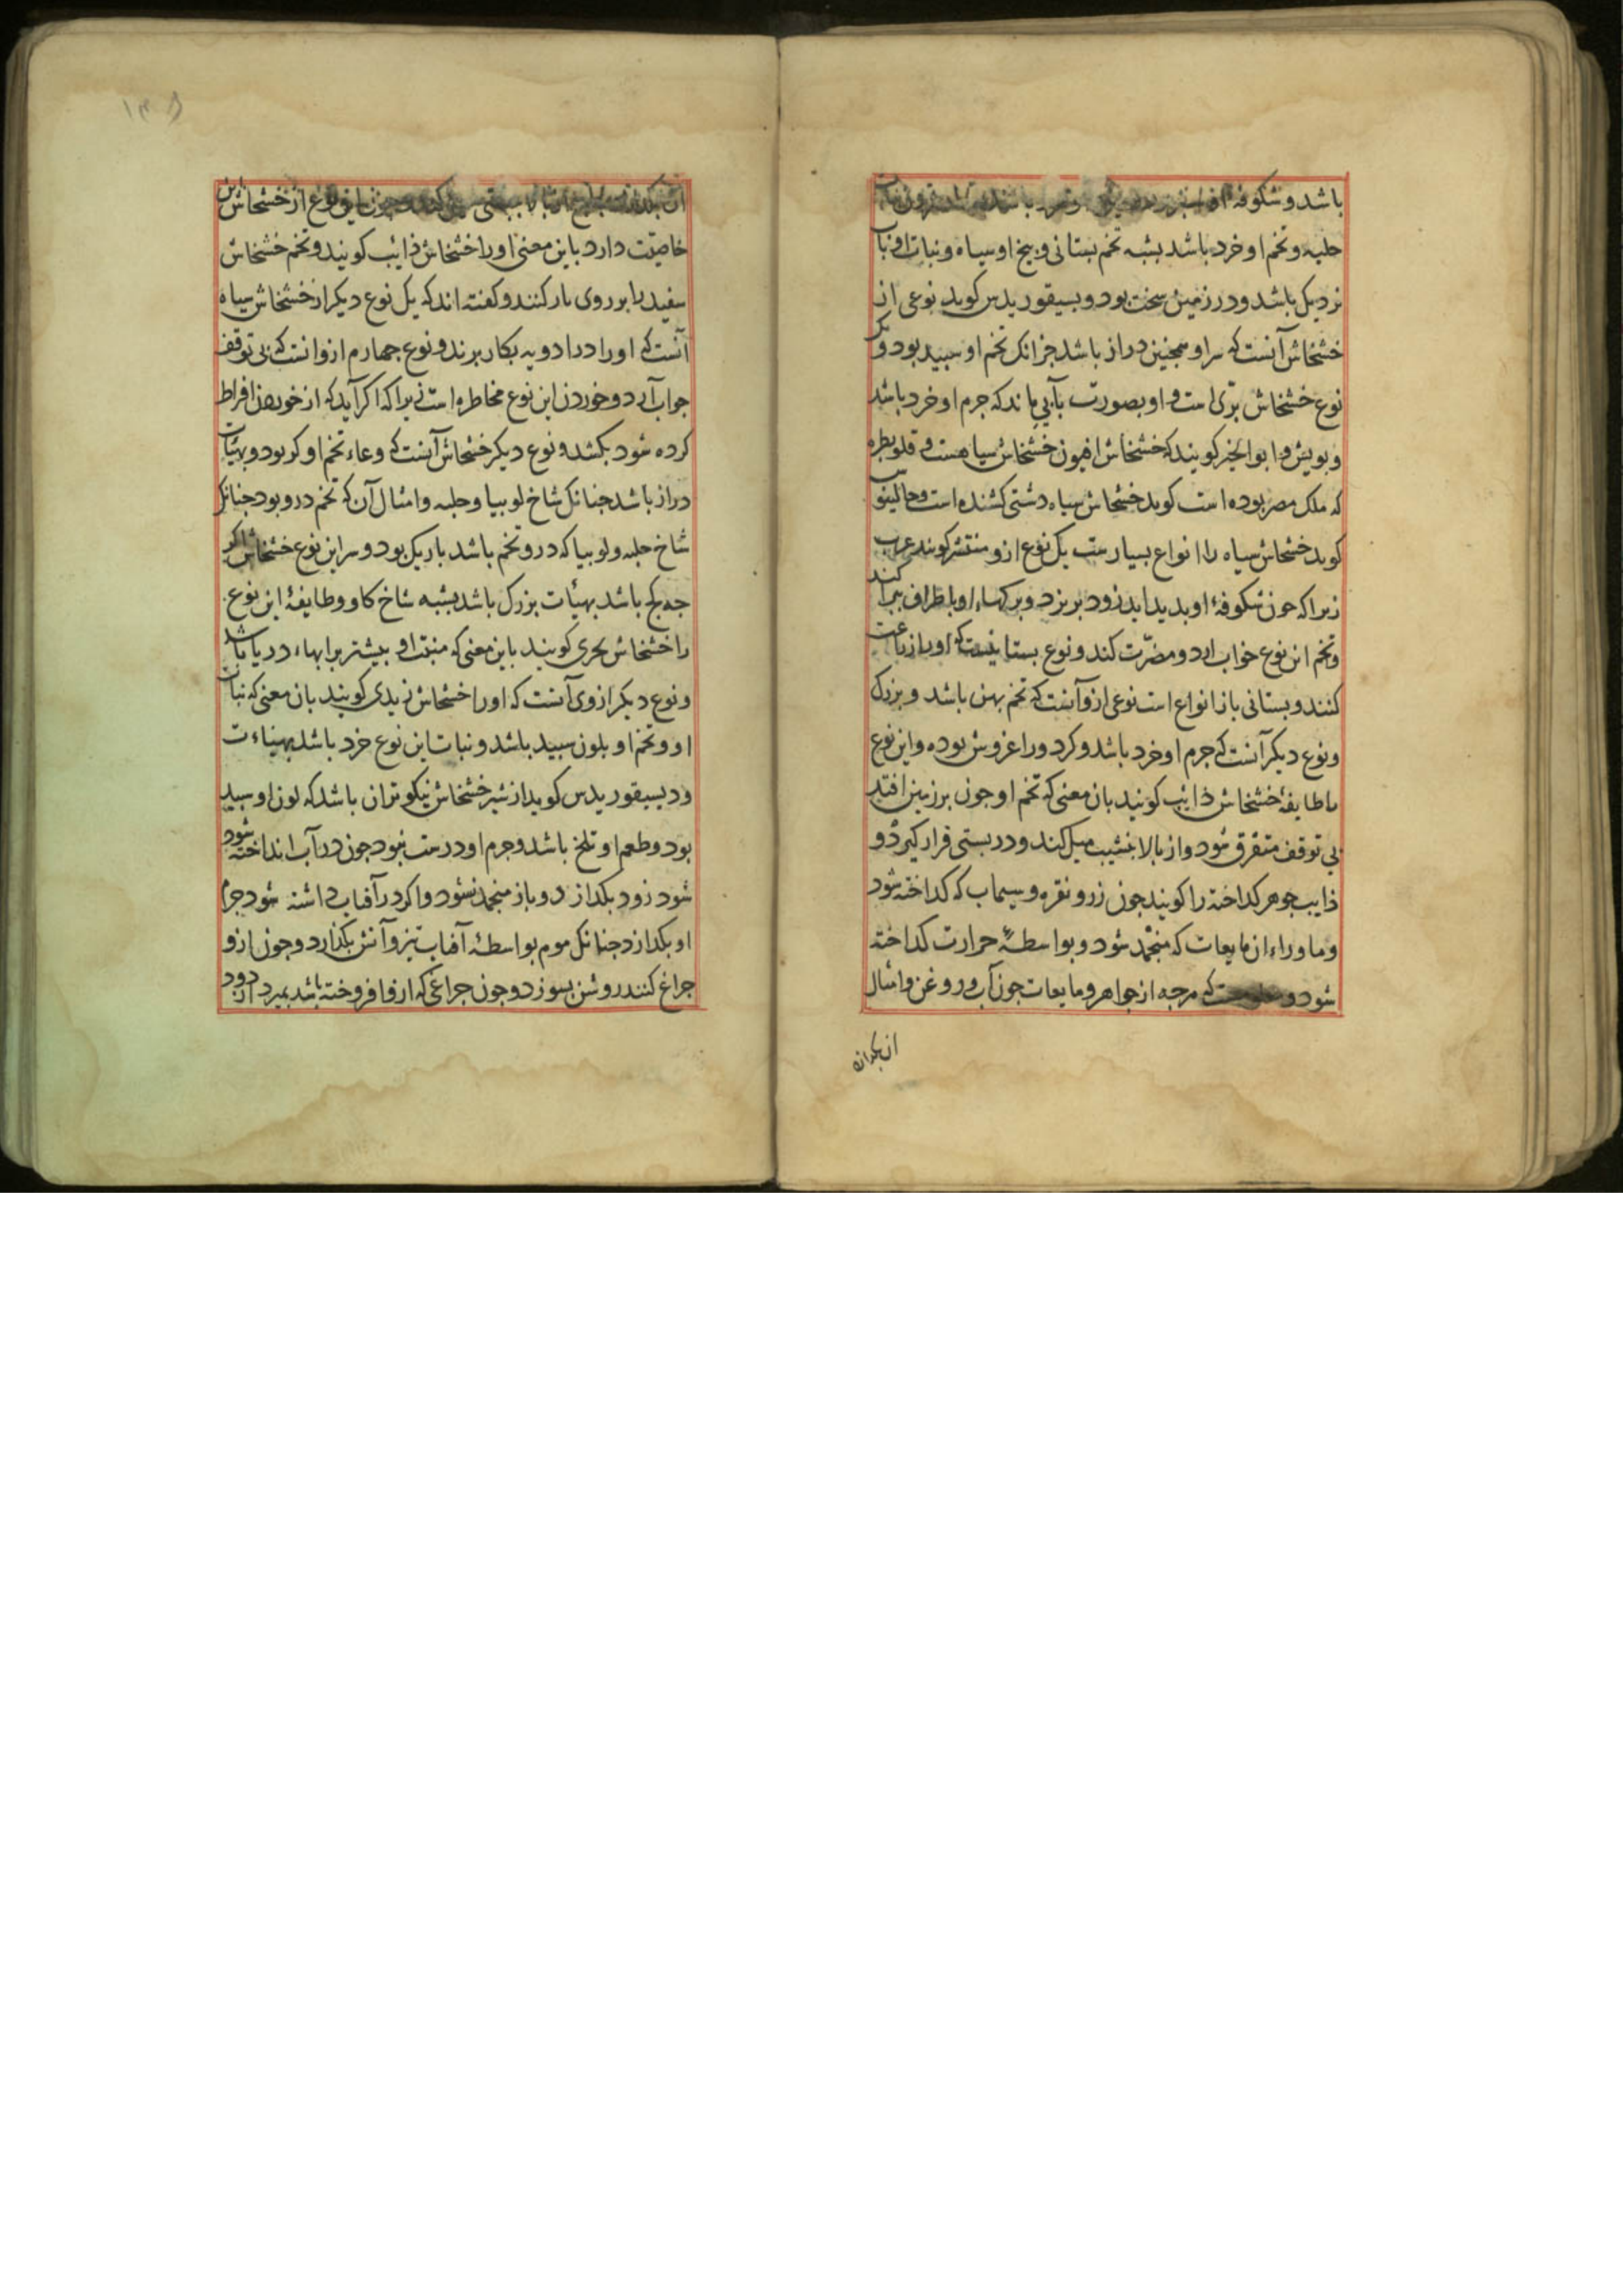 باشد و شکوفه
حلبه و تخم او خرد باشد بشبه تخم بستانی و بیخ او سیاه و نبات او نبات
نزدیک باشد و در زمین سخت بود و بسیقوریدس کوید نوعی از
خشخاش آنست که سر او همجنین دراز باشد جز انک تخم او سبید بود و دیکر
نوع خشخاش بری است و او بصورت بآبی ماند که جرم او خرد باشد
و بویش و ابو الخیر کویند که خشخاش افیون خشخاش سیاهست و قلوبطره
که ملک مصر بوده است کوید خشخاش سیاه دشتی کشنده است و جالینوس
کوید خشخاش سیاه را انواع بسیارست یک نوع ازو منتشر کویند عرب
زیرا که جون شکوفهٔ او بدید اید زود بریزد و برکهاء او باطراف میل کند
و تخم این نوع خواب ارد و مضرّت کند و نوع بستانیست که او را زراعت
کنند و بستانی باز انواع است نوعی ازو آنست که تخم بهن باشد و بزرک
و نوع دیکر آنست که جرم او خرد باشد و کرد و را غروش بوده و این نوع
ما طایفهٔ خشخاش ذایب کویند بان معنی که تخم او جون بر زمین افتد
بی توقف متفرق شود و از بالا بنشیب میل کند و در بستی قرار کیرد و
ذایب جوهر کداخته را کویند جون زر و نقره و سیماب که کداخته شود
و ما وراء ان مایعات که منجمد شود و بواسطهٔ حرارت کداخته
شود و که هرجه از جواهر و مایعات جون آب و روغن و امثال
ان بکدازد
خشخاش این نوع از
خاصیّت دارد باین معنی او را خشخاش ذائب کویند و تخم خشخاش
سفید را بر روی بار کنند و کفته اند که یک نوع دیکر از خشخاش سیاه
آنست که او را در ادویه بکار برند و نوع جهارم ازو انست که بی توقف
جواب آرد و خوردن این نوع مخاطره است زیرا که اکر آید که از خوردن افراط
کرده شود بکشد و نوع دیکر خشخاش آنست که وعاء تخم او کر بود و بهیئات
دراز باشد جنانک شاخ لوبیا و حلبه و امثال آن که تخم درو بود جنانک
شاخ حلبه و لوبیا که درو تخم باشد باریک بود و سر این نوع خشخاش اکر
جه کج باشد بهیأت بزرک باشد بشبه شاخ کاو و طایفهٔ این نوع
را خشخاش بحری کویند باین معنی که منبت او بیشتر بر ابهاء دریا باشد
و نوع دیکر ازوی آنست که او را خشخاش زبدی کویند بان معنی که نبات
او و تخم او بلون سبید باشد و نبات این نوع خرد باشد بهیاءت
و دیسیقوریدس کوید از شیر خشخاش نیکوتر ان باشد که لون او سبید
بود و طعم او تلخ باشد و جرم او درست نبود جون در آب انداخته شود
شود زود بکدازد و باز منجمد نشود و اکر در آفتاب داشته شود جرم
او بکدازد جنانک موم بواسطهٔ آفتاب تیز و آتش بکدازد و جون ازو
جراغ کنند روشن بسوزد و جون جراغی که ازو افروخته باشد بمیرد از دود